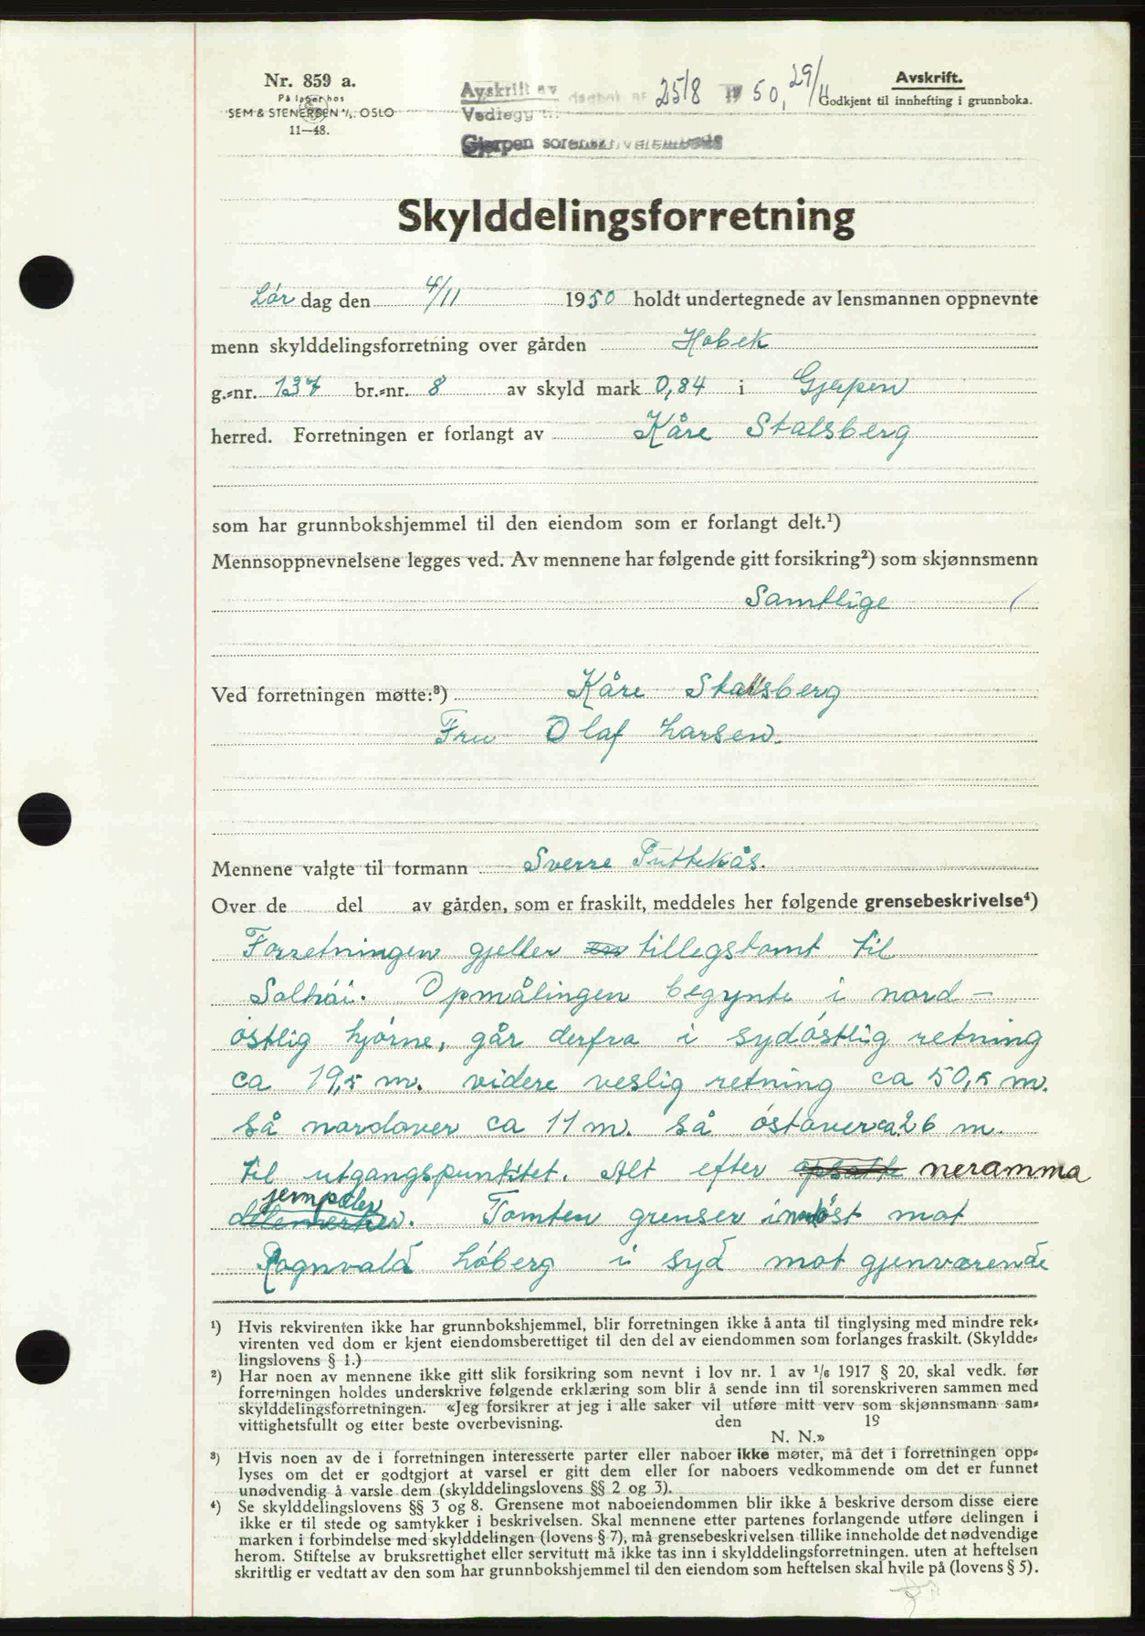 Nr. 859 a.
På lager hos
SEM & STENERSEN A/S. OSLO
11—48.
Avskrift av dagbok nr 2518 1950, 29/11
Vedlegg til
Gjerpen sorenskriverembede
Avskrift.
Godkjent til innhefting i grunnboka.
Skylddelingsforretning
Lør dag den 4/11 1950 holdt undertegnede av lensmannen oppnevnte
menn skylddelingsforretning over gården Hobek
g.=nr. 137 br.=nr. 8 av skyld mark 0,84 i Gjerpen
herred. Forretningen er forlangt av Kåre Stalsberg
som har grunnbokshjemmel til den eiendom som er forlangt delt.¹)
Mennsoppnevnelsene legges ved. Av mennene har følgende gitt forsikring²) som skjønnsmenn
Samtlige
Ved forretningen møtte:³) Kåre Stalsberg
Fru Olaf Larsen.
Mennene valgte til formann Sverre Puttekås.
Over de del av gården, som er fraskilt, meddeles her følgende grensebeskrivelse⁴)
Forretningen gjeller en tillegstomt til
Solhøi. Opmålingen begynte i nord-
østlig hjørne, går derfra i sydøstlig retning
ca 19,5 m. videre veslig retning ca 50,5 m.
så nordover ca 11 m. så østover ca 26 m.
til utgangspunktet. Alt efter opsatte neramma
jernpeler
delemerker. Tomten grenser i øst mot
Ragnvald Løberg i syd mot gjenværende
¹) Hvis rekvirenten ikke har grunnbokshjemmel, blir forretningen ikke å anta til tinglysing med mindre rek=
virenten ved dom er kjent eiendomsberettiget til den del av eiendommen som forlanges fraskilt. (Skyldde=
lingslovens § 1.)
²) Har noen av mennene ikke gitt slik forsikring som nevnt i lov nr. 1 av 1/6 1917 § 20, skal vedk. før
forretningen holdes underskrive følgende erklæring som blir å sende inn til sorenskriveren sammen med
skylddelingsforretningen. «Jeg forsikrer at jeg i alle saker vil utføre mitt verv som skjønnsmann sam=
vittighetsfullt og etter beste overbevisning. den 19
N. N.»
³) Hvis noen av de i forretningen interesserte parter eller naboer ikke møter, må det i forretningen opp=
lyses om det er godtgjort at varsel er gitt dem eller for naboers vedkommende om det er funnet
unødvendig å varsle dem (skylddelingslovens §§ 2 og 3).
⁴) Se skylddelingslovens §§ 3 og 8. Grensene mot naboeiendommen blir ikke å beskrive dersom disse eiere
ikke er til stede og samtykker i beskrivelsen. Skal mennene etter partenes forlangende utføre delingen i
marken i forbindelse med skylddelingen (lovens § 7), må grensebeskrivelsen tillike inneholde det nødvendige
herom. Stiftelse av bruksrettighet eller servitutt må ikke tas inn i skylddelingsforretningen. uten at heftelsen
skriftlig er vedtatt av den som har grunnbokshjemmel til den eiendom som heftelsen skal hvile på (lovens § 5).